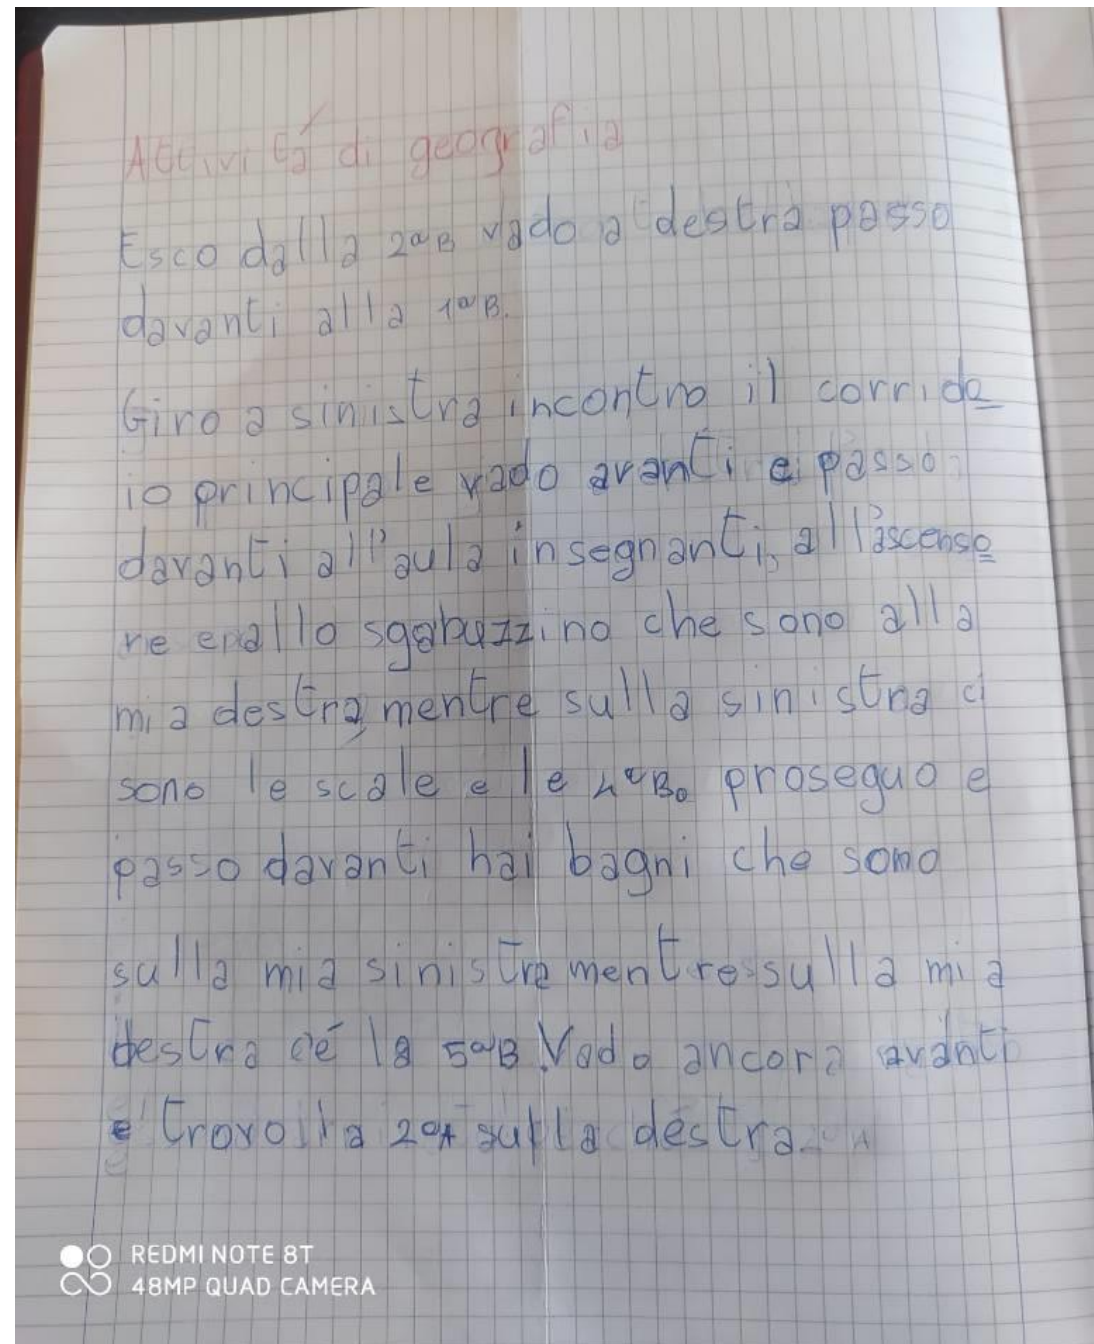 Attività di geografia
Esco dalla 2ªB vado a destra passo
davanti alla 1ªB.
Giro a sinistra incontro il corrido
io principale vado avanti e passo
davanti all'aula insegnanti, all'ascenso
re e allo sgabuzzino che sono alla
mia destra, mentre sulla sinistra ci
sono le scale e le 4ªB. proseguo e
passo davanti hai bagni che sono
sulla mia sinistra mentre sulla mia
destra cé la 5ªB. Vado ancora avanti
e trovo la 2ªA sulla destra.
REDMI NOTE 8T
48MP QUAD CAMERA